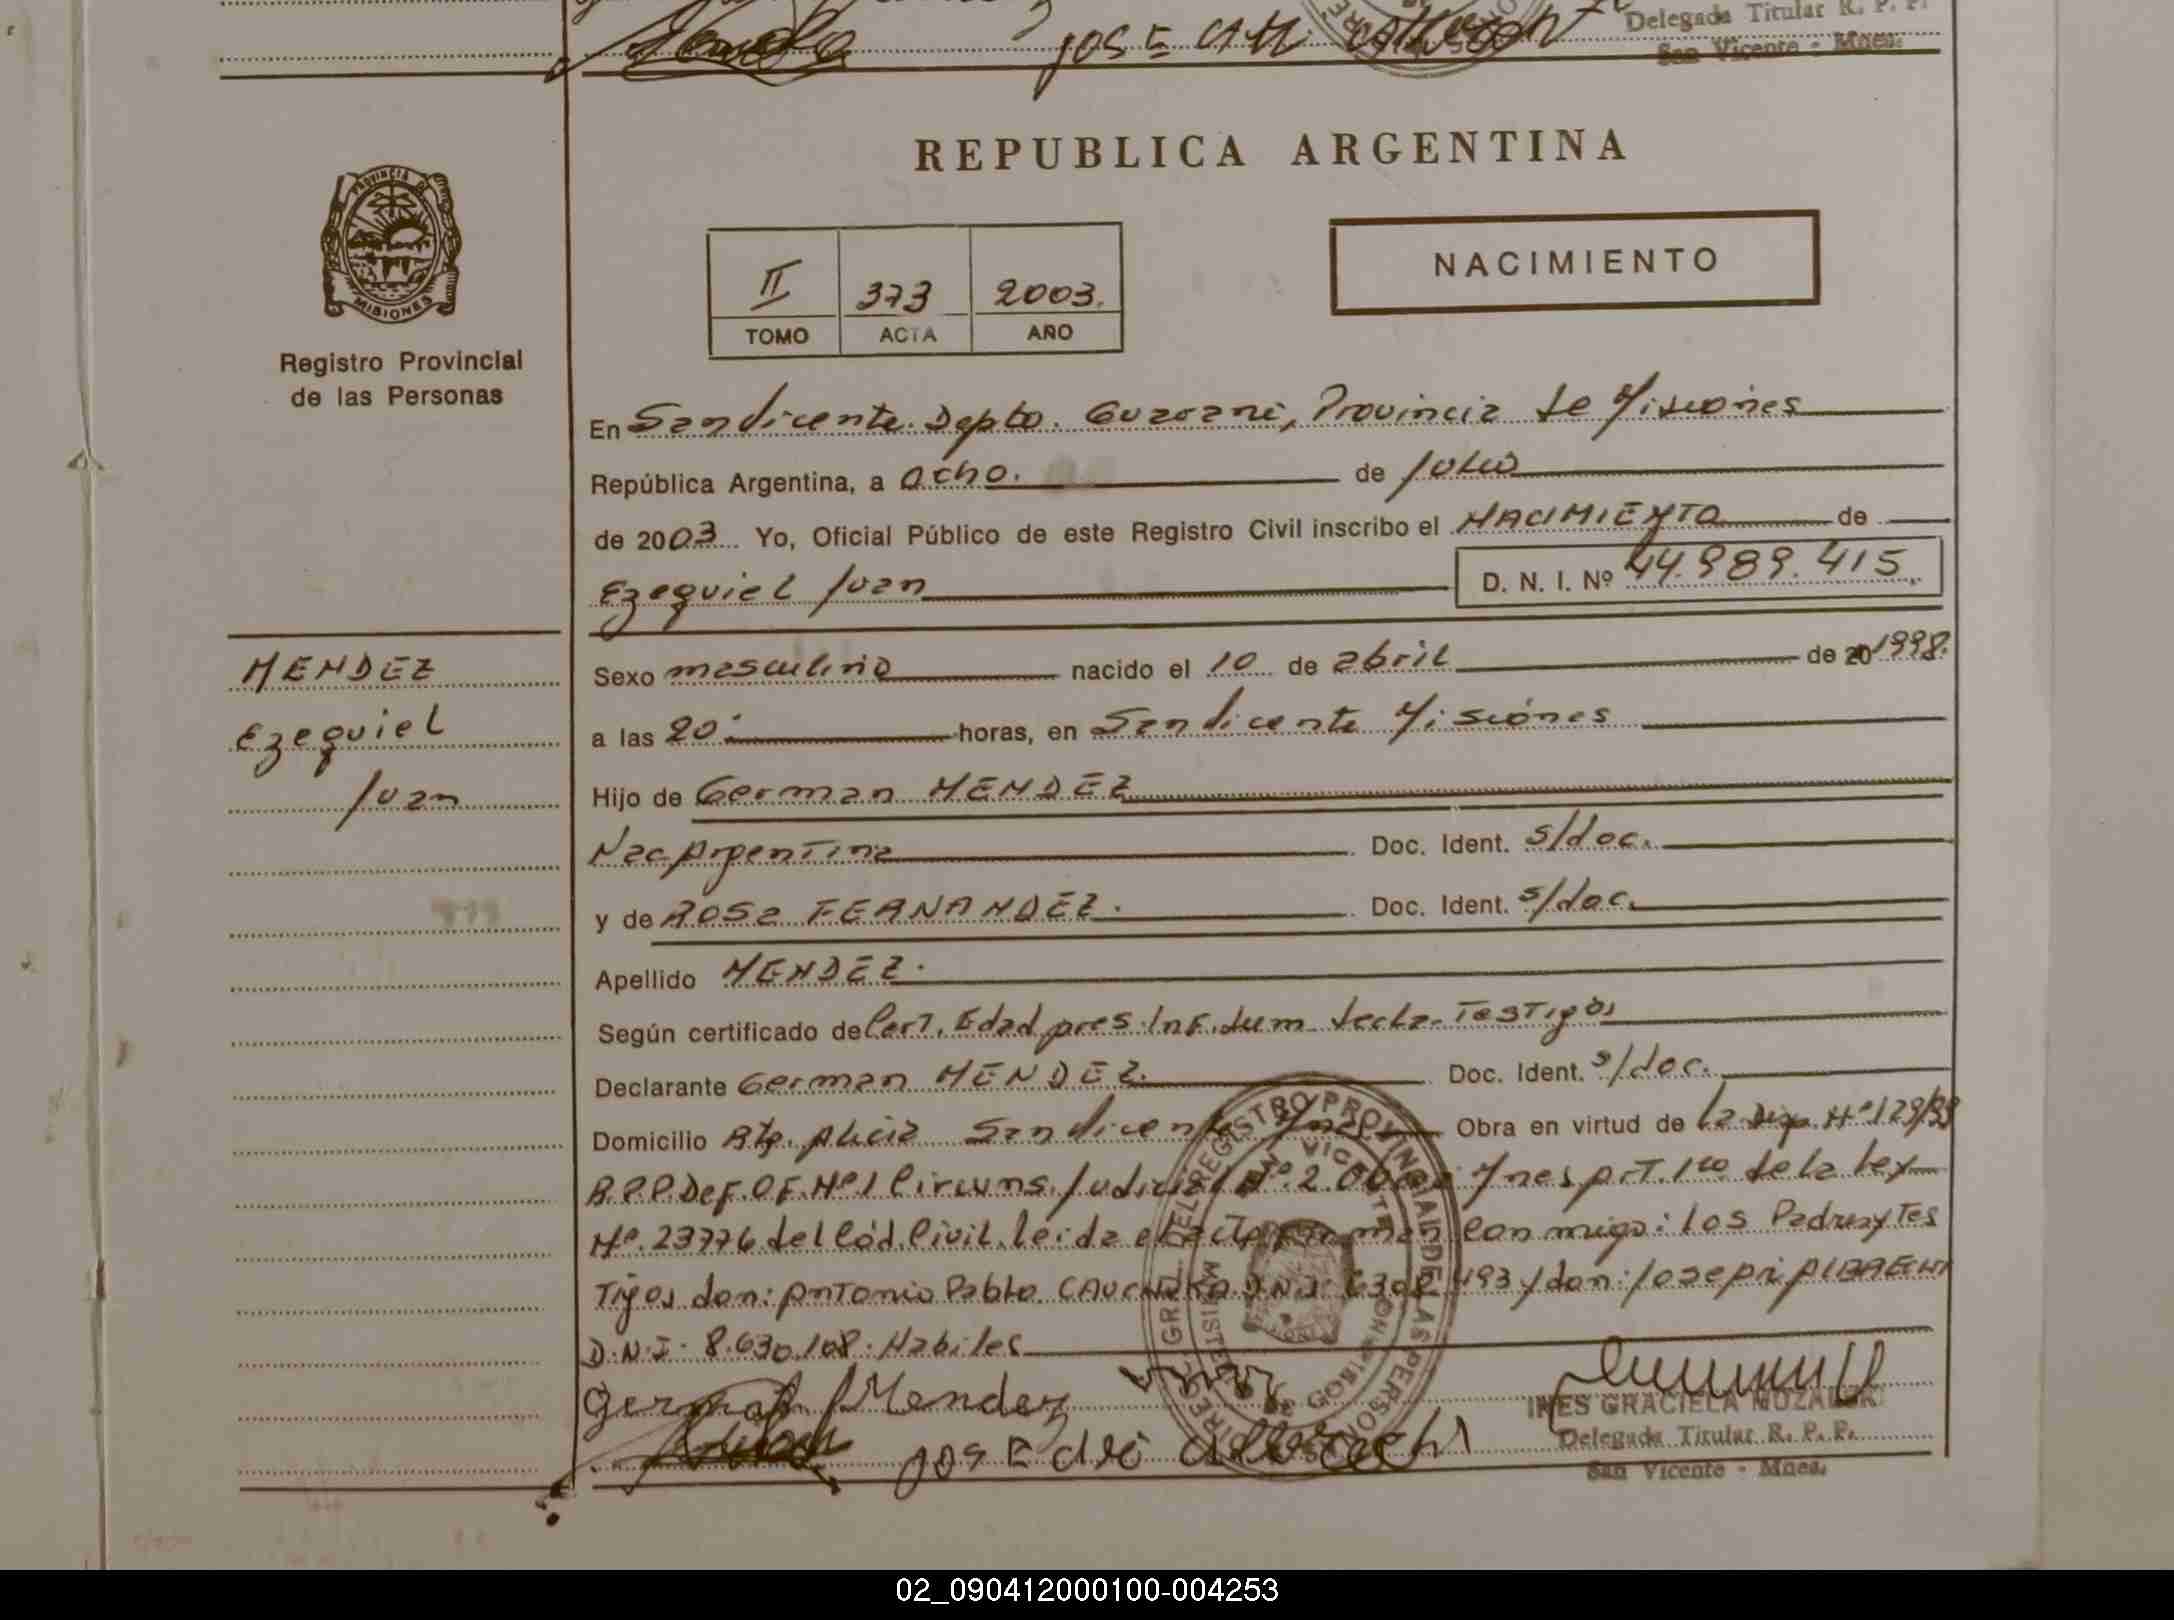 Delegada Titular R. P. P.
San Vicente - Mnes.
REPUBLICA ARGENTINA
PROVINCIA DE
MISIONES
Registro Provincial
de las Personas
II 373 2003.
TOMO ACTA AÑO
NACIMIENTO
En San Vicente. Depto. Guarani, Provincia de Misiones
República Argentina, a ocho. de Julio
de 2003 Yo, Oficial Público de este Registro Civil inscribo el NACIMIENTO de
Ezequiel Juan D. N. I. Nº 44.989.415
MENDEZ
Ezequiel
Juan
Sexo masculino nacido el 10 de abril de 20 1998.
a las 20 horas, en San Vicente Misiones
Hijo de German MENDEZ
Nac Argentina Doc. Ident. s/doc.
y de Rosa FERNANDEZ. Doc. Ident. s/doc.
Apellido MENDEZ.
Según certificado de Cert. Edad pres. Inf. sum decla. Testigos
Declarante German MENDEZ. Doc. Ident. s/doc.
Domicilio Alicia San Vicente Mnes Obra en virtud de la Nº 129/
R.P.P. Def. Of. Nº 1 Circuns. Judicial Nº. 2. Mnes art. 1ro. de la Ley
Nº. 23776 del Cód. Civil. Leida el acta firman conmigo: los Padres y Tes
Tigos don: Antonio Pablo D.N.I. 493 y don: Jose
D.N.I. 8.630.108. Habiles
German Mendez
INES GRACIELA
Delegada Titular R. P. P.
San Vicente - Mnes.
02_090412000100-004253